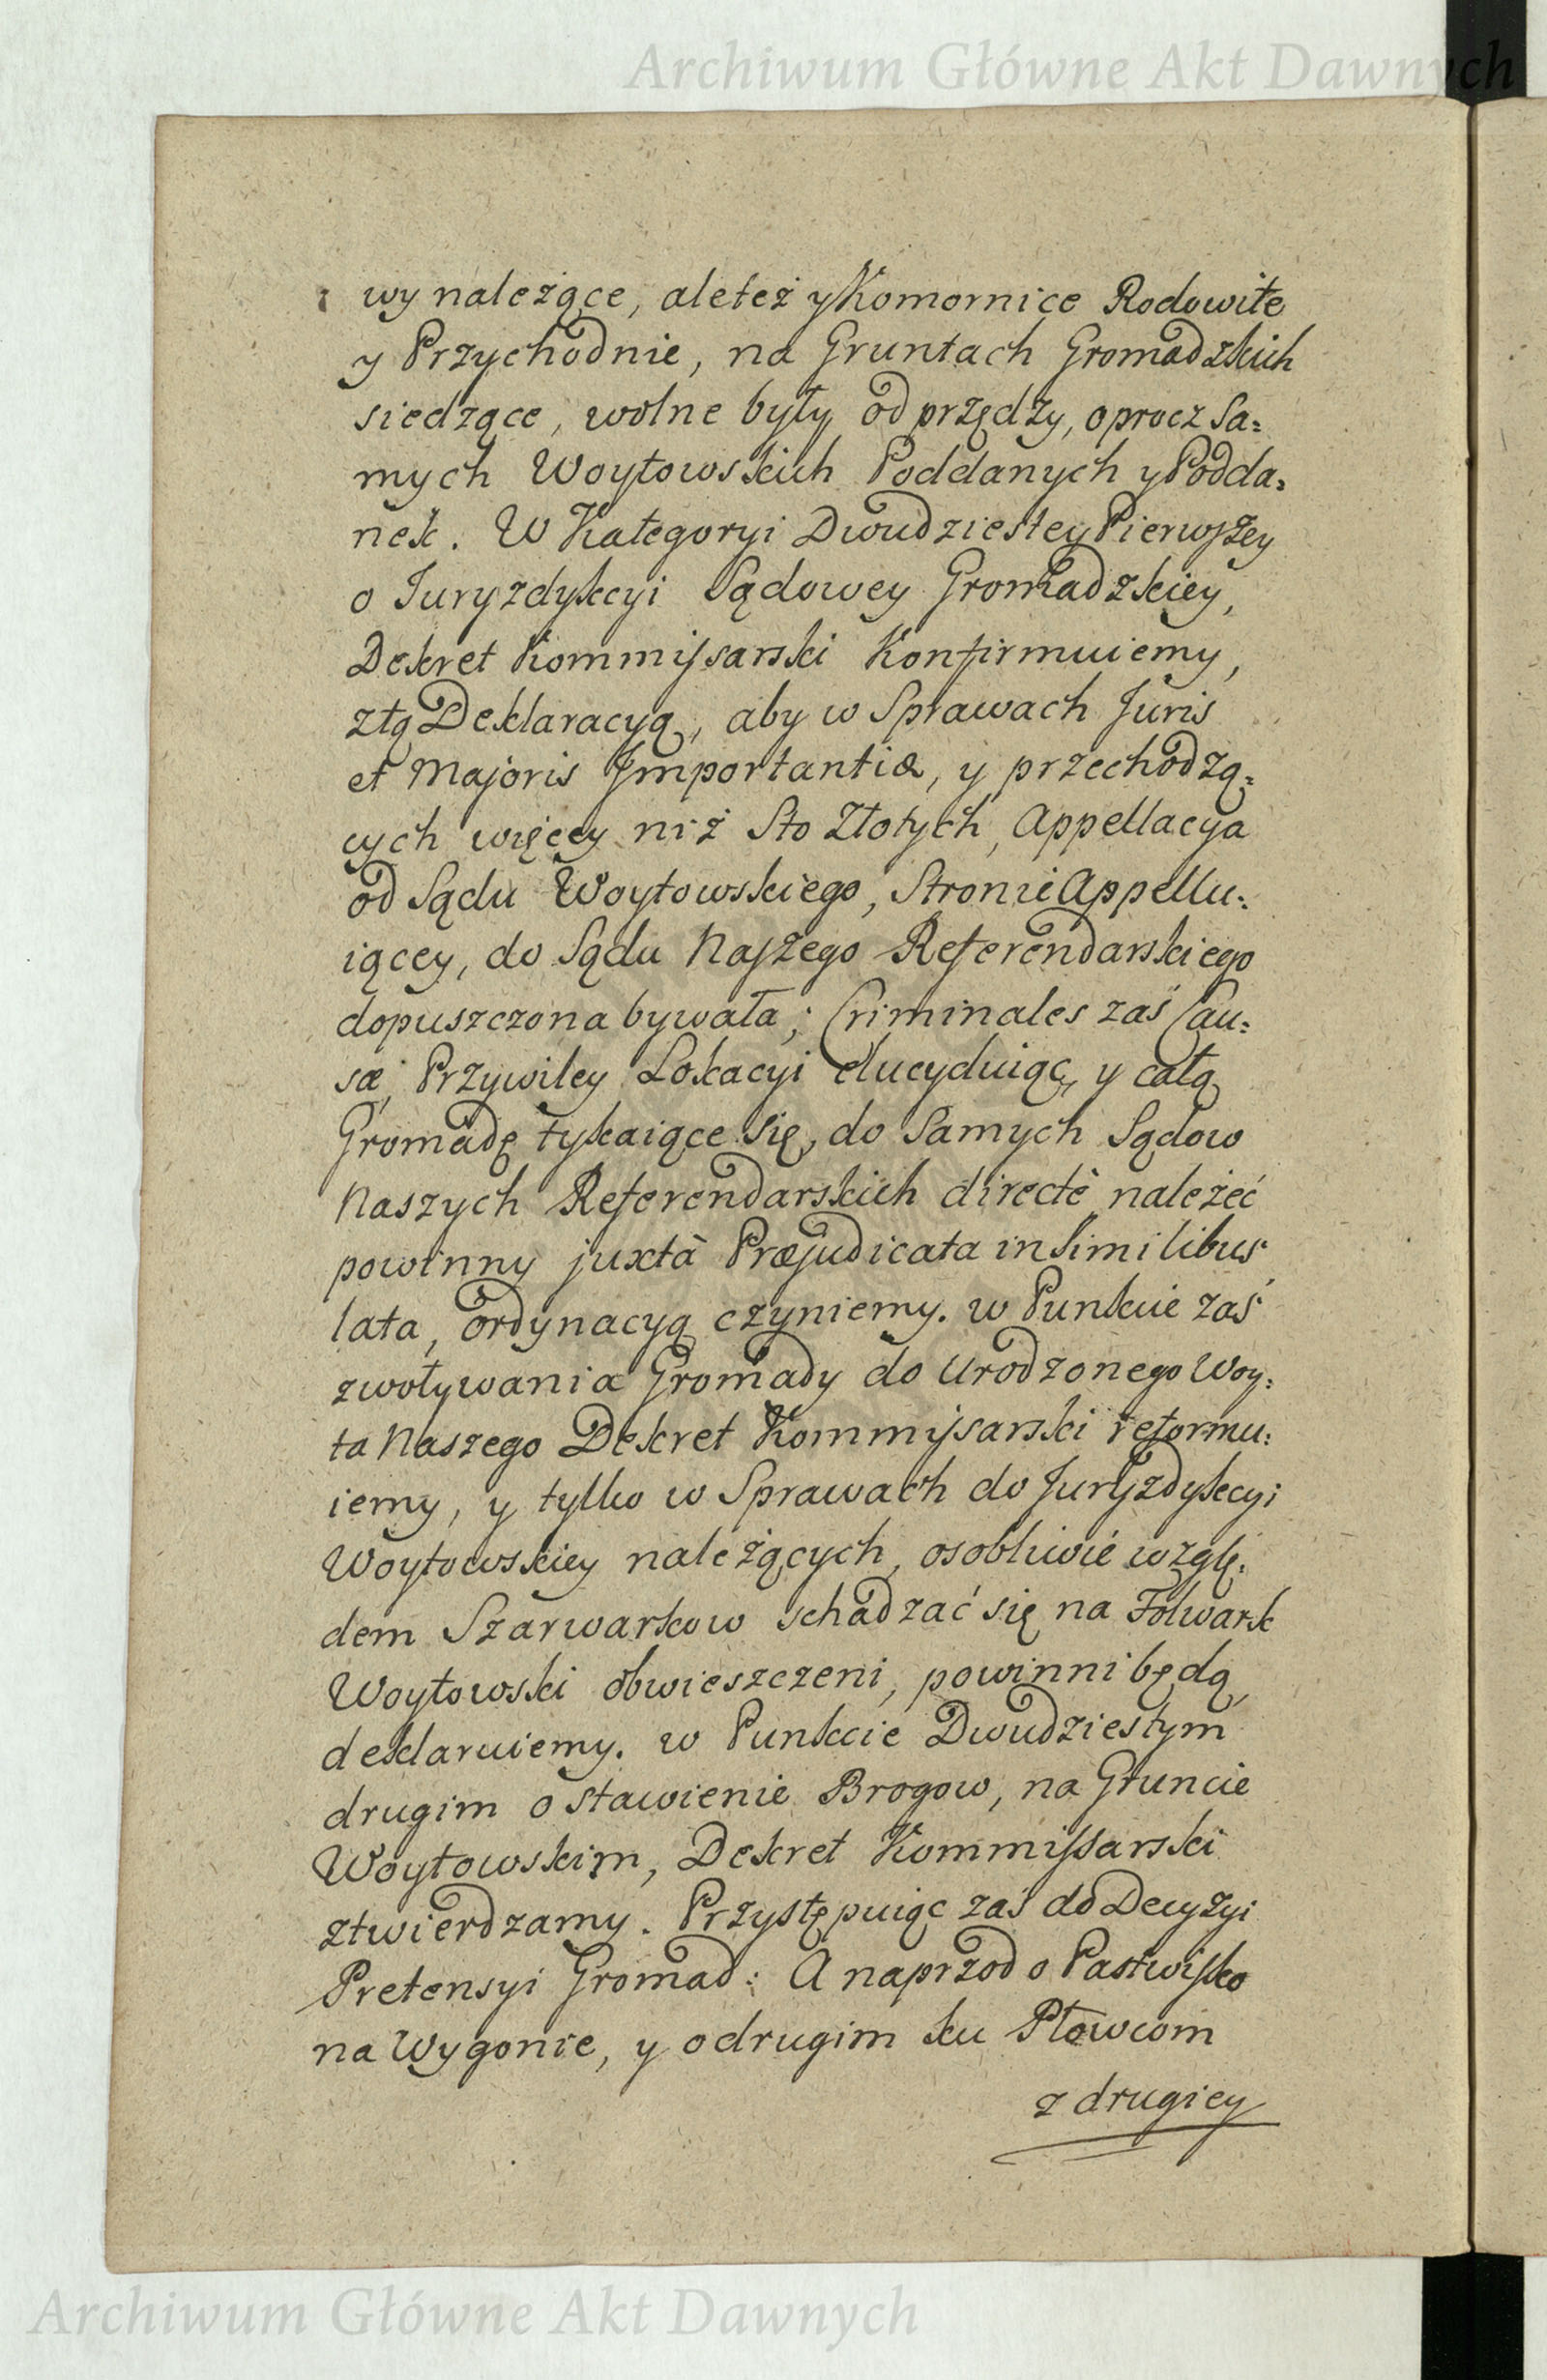 Archiwum Główne Akt Dawnych
wy należące, aleteż y Komornice Rodowite
y Przychodnie, na Gruntach Gromadzkich
siedzące, wolne były od przędzy, oprocz Sa:
mych Woytowskich Poddanych y Podda:
nek. W Kategoryi Dwudziestey Pierwszey
o Juryzdykcyi Sądowey Gromadzkiey,
Dekret Kommissarski Konfirmuiemy,
ztą Deklaracyą, aby w Sprawach Juris
et Majoris Importantiæ, y przechodzą:
cych więcey niż Sto Złotych, Appellacya
od Sądu Woytowskiego, Stronie Appellu:
iącey, do Sądu Naszego Referendarskiego
dopuszczona bywała; Criminales zaś Cau:
sæ, Przywiley Lokacyi elucyduiące, y całą
Gromadę tykaiące się, do Samych Sądow
Naszych Referendarskich directè należeć
powinny juxtà Præjudicata in Similibus
lata, ordynacyą czyniemy. w Punkcie zaś
zwoływania Gromady do Urodzonego Woy:
ta Naszego Dekret Kommissarski reformu:
iemy, y tylko w Sprawach do Juryzdykcyi
Woytowskiey należących, osobliwie wzglę:
dem Szarwarkow schadzać się na Folwark
Woytowski obwieszczeni, powinni będą,
deklaruiemy. w Punkcie Dwudziestym
drugim o stawienie Brogow, na Gruncie
Woytowskim, Dekret Kommissarski
ztwierdzamy. Przystępuiąc zaś do Decyzyi
Pretensyi Gromad: A naprzod o Pastwisko
na Wygonie, y o drugim ku Płowcom
z drugiey
Archiwum Główne Akt Dawnych